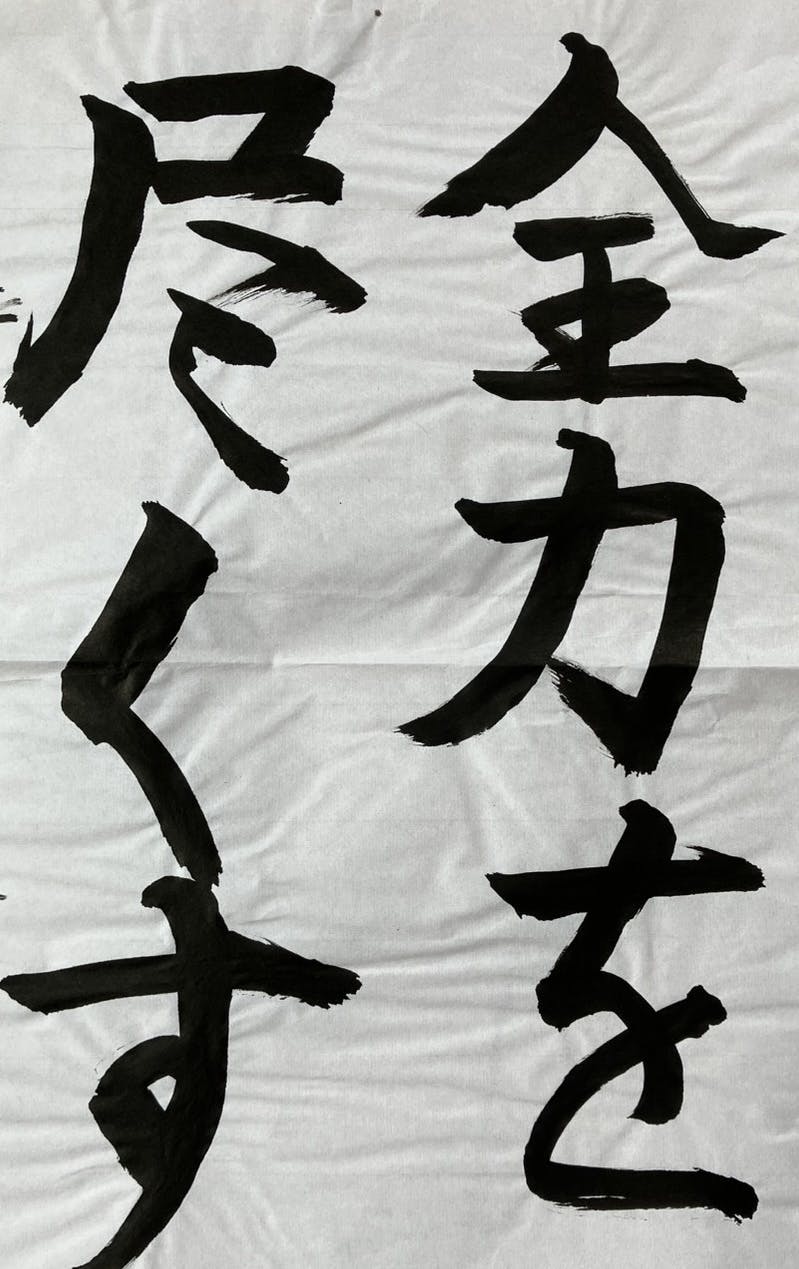 全力を
尽くす